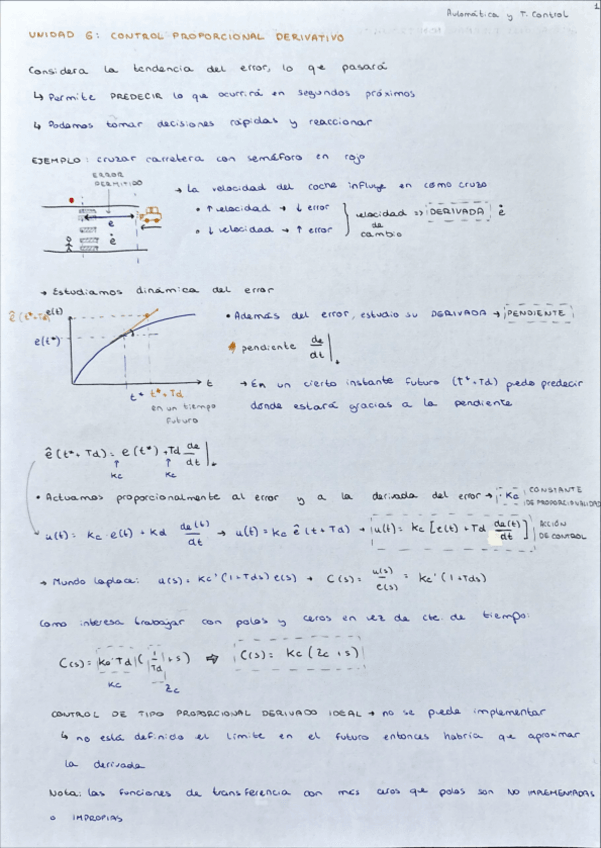 1
Automática y T. Control
UNIDAD 6: CONTROL PROPORCIONAL DERIVATIVO
Considera la tendencia del error, lo que pasará
↳ Permite PREDECIR lo que ocurrirá en segundos próximos
↳ Podemos tomar decisiones rápidas y reaccionar
EJEMPLO: cruzar carretera con semáforo en rojo
ERROR
PERMITIDO
e
ė
→ La velocidad del coche influye en cómo cruzo
• ↑ velocidad → ↓ error
• ↓ velocidad → ↑ error
velocidad => DERIVADA ė
de
cambio
→ Estudiamos dinámica del error
ê(t*+Td) e(t)
e(t*)
t
t* t*+Td
en un tiempo
futuro
• Además del error, estudio su DERIVADA → PENDIENTE
pendiente de/dt|
→ En un cierto instante futuro (t*+Td) puedo predecir
donde estará gracias a la pendiente
ê(t*+Td) = e(t*) + Td de/dt|
Kc Kc
• Actuamos proporcionalmente al error y a la derivada del error → Kc CONSTANTE
DE PROPORCIONALIDAD
u(t) = Kc · e(t) + Kd de(t)/dt → u(t) = Kc ê(t+Td) → u(t) = Kc [e(t) + Td de(t)/dt] ACCIÓN
DE CONTROL
→ Mundo laplace: u(s) = Kc'(1+Tds) e(s) → C(s) = u(s)/e(s) = Kc'(1+Tds)
Como interesa trabajar con polos y ceros en vez de cte. de tiempo:
C(s) = Kc' Td (1/Td + s) ⇒ C(s) = Kc (Zc + s)
Kc Zc
CONTROL DE TIPO PROPORCIONAL DERIVADO IDEAL → no se puede implementar
↳ no está definido el límite en el futuro entonces habría que aproximar
la derivada
Nota: las funciones de transferencia con más ceros que polos son NO IMPLEMENTADAS
o IMPROPIAS